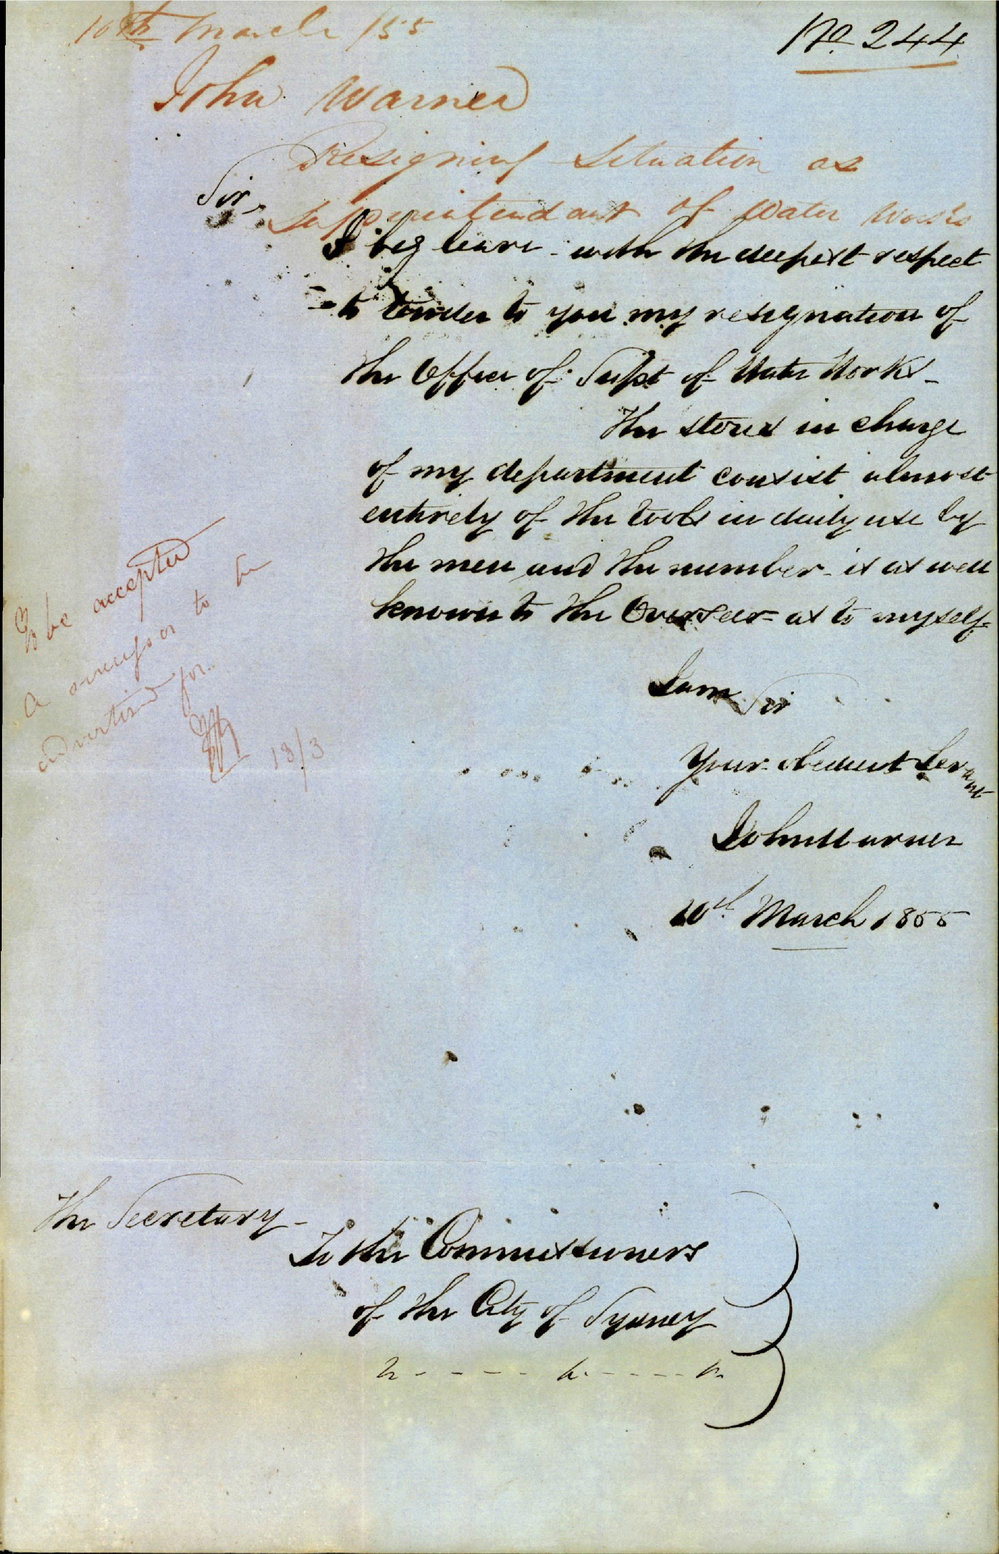 10th March /55
No. 244
John Warner
Resigning situation as
Superintendant of Water Works
Sir,
I beg leave with the deepest respect
to tender to you my resignation of
the Office of Supt of Water Works_
The stores in charge
of my department consist almost
entirely of the tools in daily use by
the men and the number is as well
known to the Overseer as to myself_
I am Sir
Your obedient Servant
John Warner
10th March 1855
To be accepted
a successor to be
advertised for.
13/3
The Secretary_
To the Commissioners
of the City of Sydney